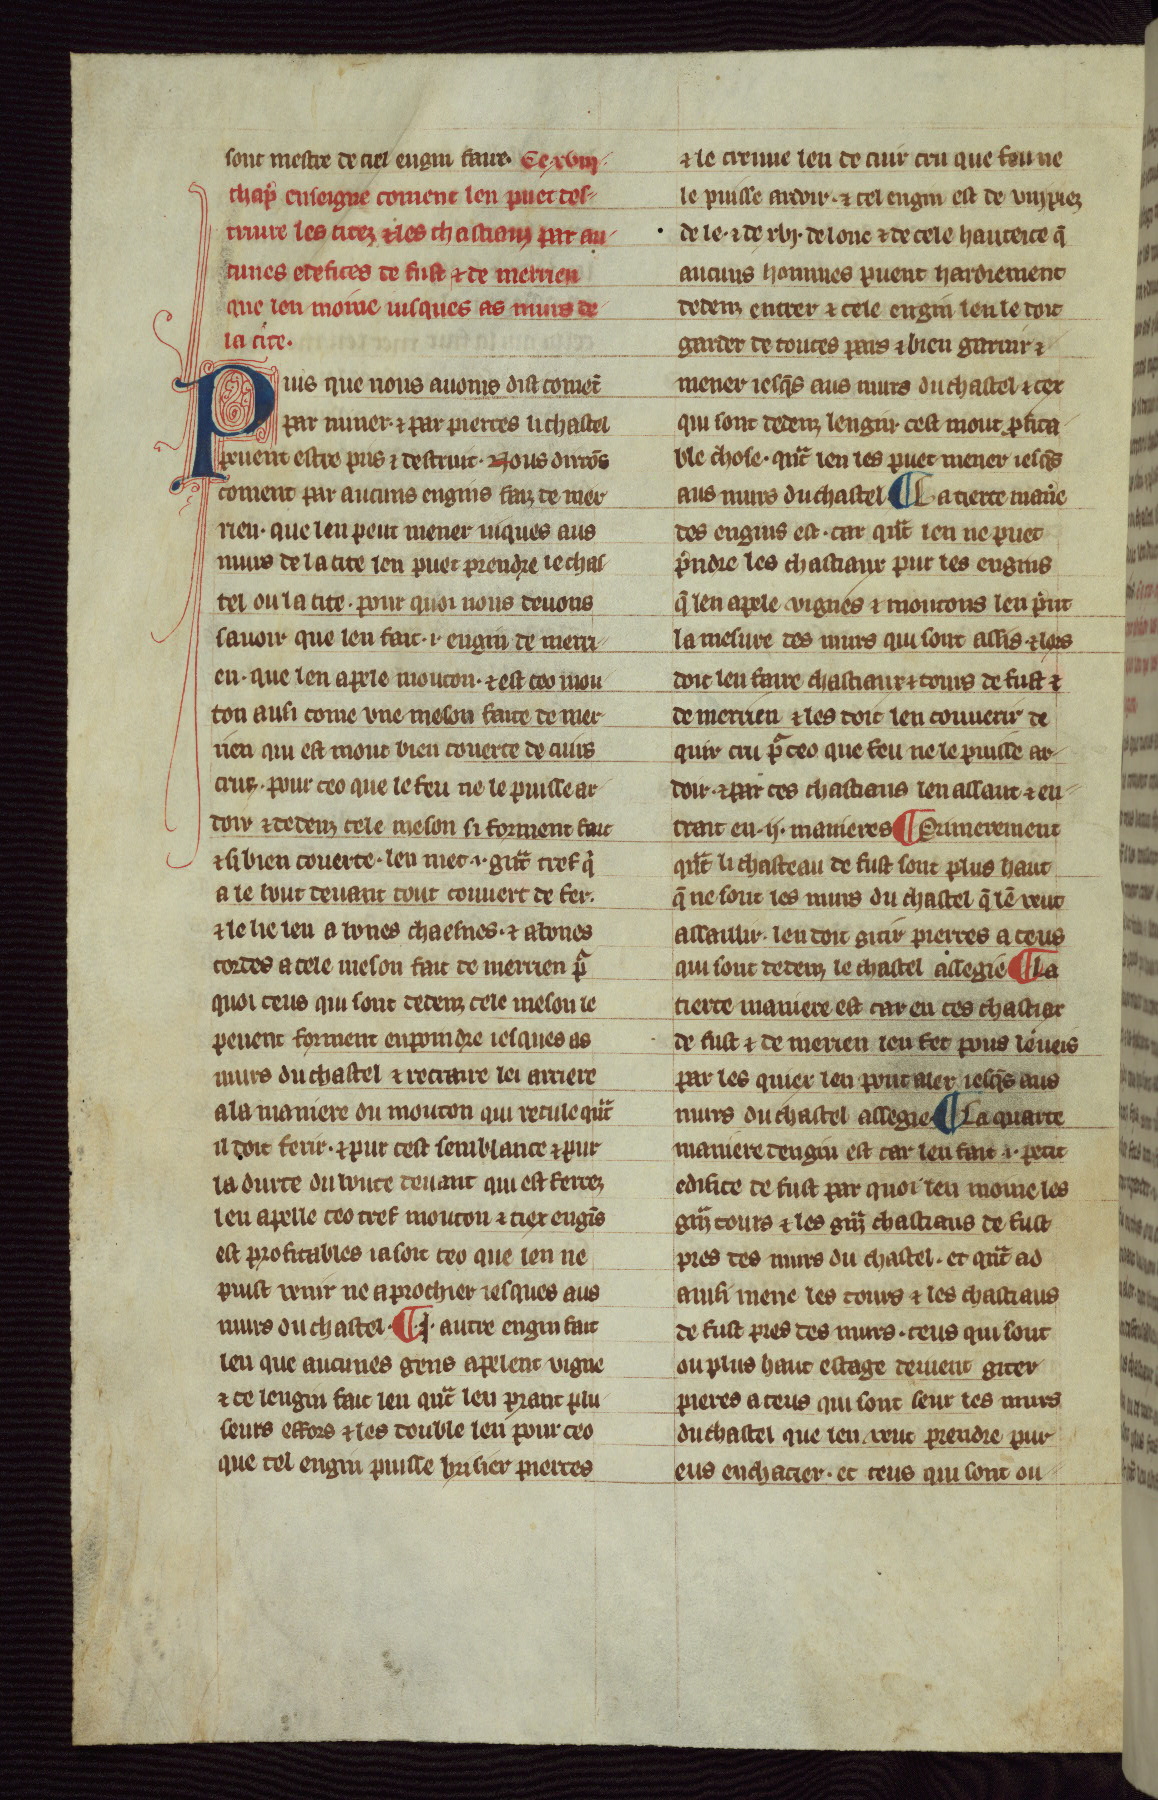 sont mestre de ciel engin faire. Ce xviij.
chap̉ enseigne coment len puet des-
truire les citez ⁊ les chastiaus par au-
cunes edefices de fust ⁊ de merrien
que len moine iusques as murs de
la cite.
Puis que nous auoms dist comēt
par miner. ⁊ par pierres li chastel
peuent estre pris ⁊ destruit. Nous dirōs
coment par aucuns engins faiz de mer
rien. que len peut mener iuques aus
murs de la cite len puet prendre le chas
tel ou la cite. pour quoi nous deuons
sauoir que len fait .i. engin de merri
en. que len apele mouton. ⁊ est ceo mou
ton ausi come vne meson faite de mer
rien qui est mout bien couerte de cuirs
cruz. pour ceo que le feu ne le puisse ar
doir ⁊ dedenz cele meson si forment fait
⁊ si bien couerte. len met .i. grāt tref q̉
a le bout deuant tout couuert de fer.
⁊ le lie len a bones chaesnes. ⁊ a bones
cordes a cele meson fait de merrien p̄
quoi ceus qui sont dedenz cele meson le
peuent forment enpoindre iesques as
murs du chastel ⁊ retraire lei arriere
a la maniere du mouton qui recule qūt
il doit ferir. ⁊ pur cest semblance ⁊ pur
la durte du boute deuant qui est ferrez
len apelle ceo tref mouton ⁊ ciex engīs
est profitables ia soit ceo que len ne
puist venir ne aprochier iesques aus
murs du chastel. ¶ .I. autre engin fait
len que aucunes gens apelent vigne
⁊ ce lengin fait len qūt len prant plu
seurs effors ⁊ les double len pour ceo
que tel engin puisse brisier pierres
⁊ le cueuue len de cuir cru que feu ne
le puisse ardoir. ⁊ cel engin est de viij piez
de le. ⁊ de xvj. de lonc ⁊ de cele hautece q̄
aucuns hommes puent hardiement
dedenz entrer ⁊ cele engin len le doit
garder de toutes pars ⁊ bien garnir ⁊
mener iesq̄s aus murs du chastel ⁊ cex
qui sont dedenz lengin cest mout p̱fita
ble chose. qūt len les puet mener iesq̄s
aus murs du chastel ¶ La tierce mani̾e
des engins est. car qūt len ne puet
p̉ndre les chastiaux pur les engins
q̄ len apele vignes ⁊ moutons len p̉nt
la mesure des murs qui sont assis. ⁊ lors
doit len faire chastiaux ⁊ tours de fust ⁊
de merrien ⁊ les doit len couuerir de
quir cru p̄ ceo que feu ne le puisse ar-
doir. ⁊ par ces chastiaus len assaut ⁊ en-
trait en .ij. manieres ¶ Primerement
qūt li chasteau de fust sont plus haut
q̄ ne sont les murs du chastel q̄ lē veut
assaulir. len doit gitir pierres a ceus
qui sont dedenz le chastel assegie ¶ La
tierce maniere est car en ces chastiax
de fust ⁊ de merrien len fet pons leueis
par les quiex len pout aler iesq̄s aus
murs du chastel assegie ¶ La quarte
maniere dengin est car len fait .i. petit
edifice de fust par quoi len moine les
grāz tours ⁊ les grāz chastiaus de fust
pres des murs du chastel. et qūt ad
ainsi mene les tours ⁊ les chastiaus
de fust pres des murs. ceus qui sont
ou plus haut estage deiuent giter
pieres a ceus qui sont seur les murs
du chastel que len veut prendre pur
eus enchacier. et ceus qui sont ou